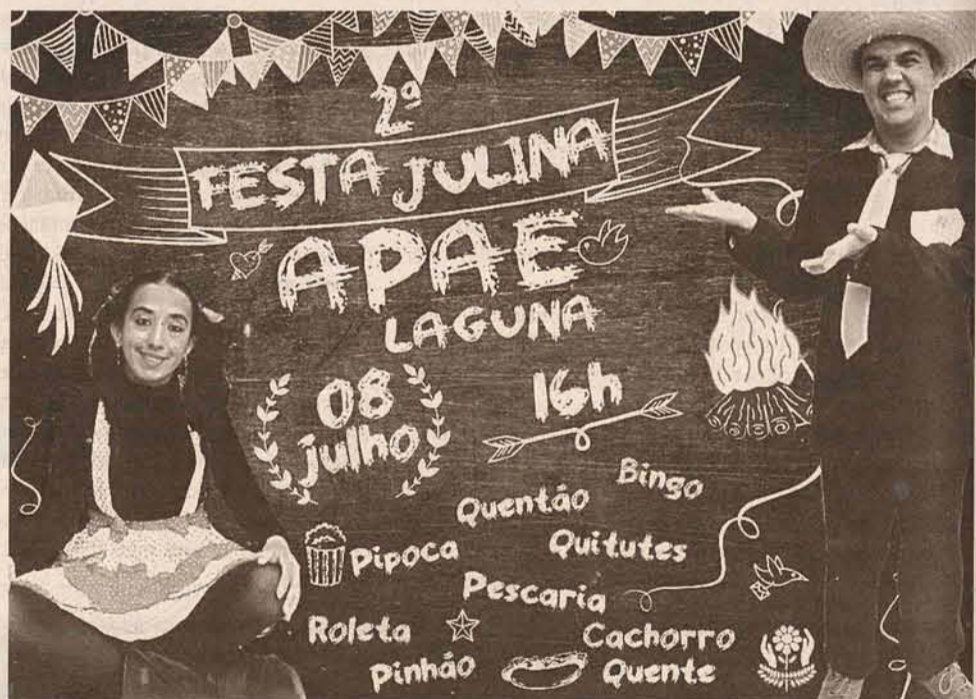 2ª
FESTA JULINA
APAE
LAGUNA
08
julho
16h
Bingo
Quentão
Pipoca
Quitutes
Pescaria
Roleta
Cachorro
Quente
Pinhão